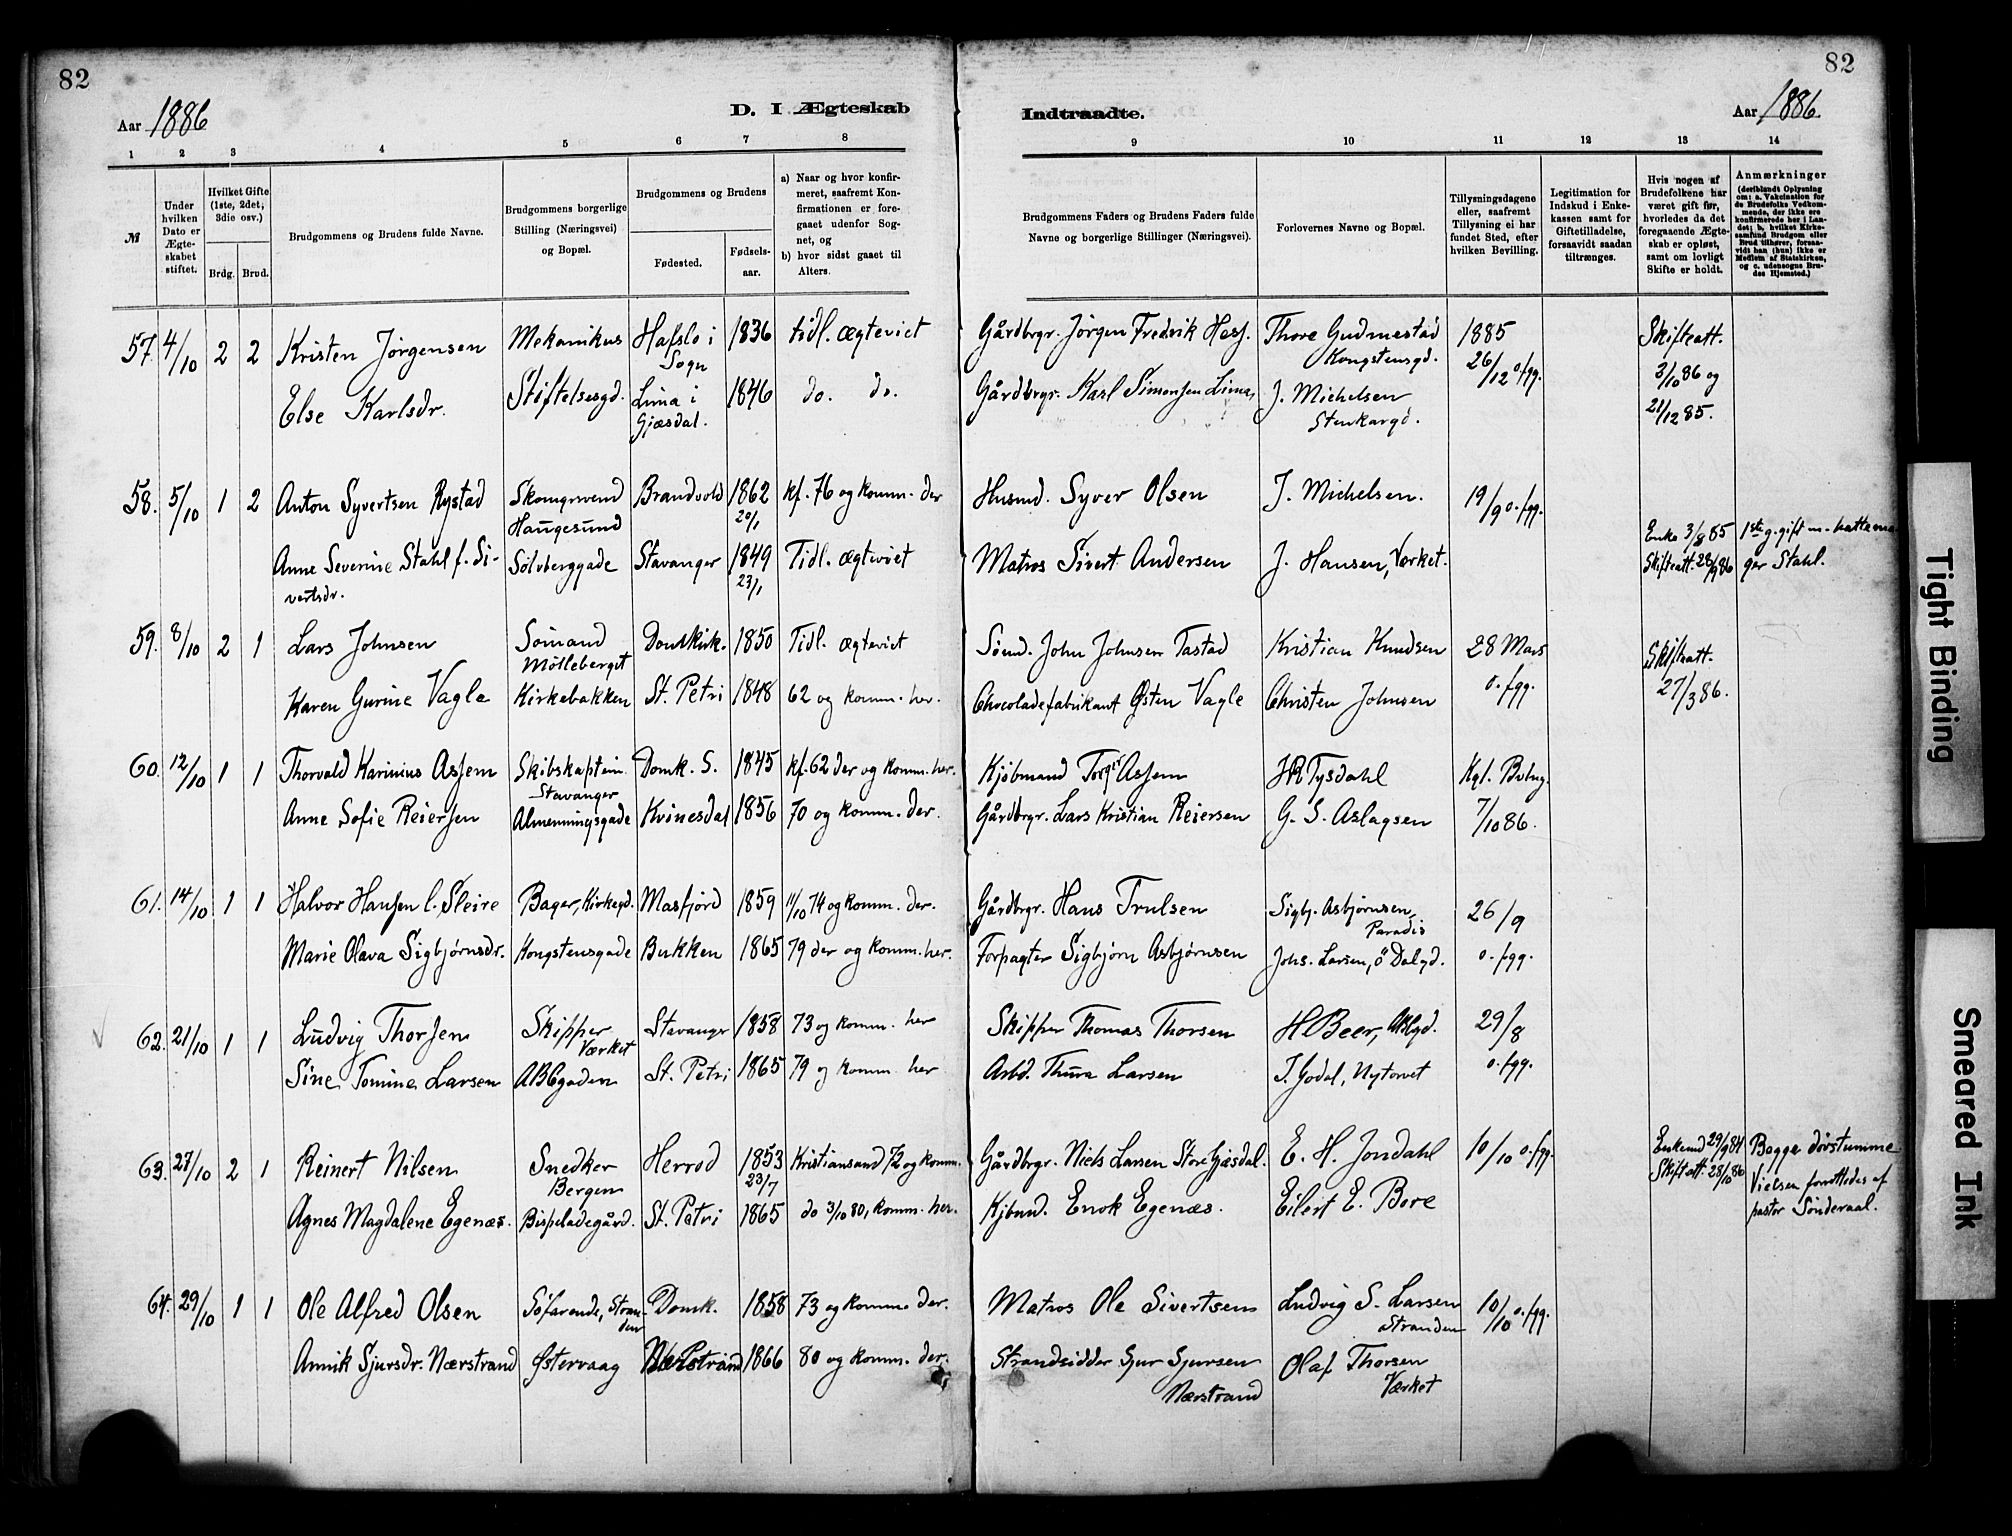 82
82
Aar 1886
D. I Ægteskab
Indtraadte.
Aar 1886.
1 2 3 4 5 6 7 8
9 10 11 12 13 14
№
Under hvilken Dato er Ægteskabet stiftet.
Hvilket Gifte (1ste, 2det, 3die osv.)
Brdg. Brud.
Brudgommens og Brudens fulde Navne.
Brudgommens borgerlige Stilling (Næringsvei) og Bopæl.
Brudgommens og Brudens
Fødested.
Fødselsaar.
a) Naar og hvor konfirmeret, saafremt Konfirmationen er foregaaet udenfor Sognet, og
b) hvor sidst gaaet til Alters.
Brudgommens Faders og Brudens Faders fulde Navne og borgerlige Stillinger (Næringsvei).
Forlovernes Navne og Bopæl.
Tillysningsdagene eller, saafremt Tillysning ei har fundet Sted, efter hvilken Bevilling.
Legitimation for Indskud i Enkekassen samt for Giftetilladelse, forsaavidt saadan tiltrænges.
Hvis nogen af Brudefolkene har været gift før, hvorledes da det foregaaende Ægteskab er opløst, samt om lovligt Skifte er holdt.
Anmærkninger (deriblandt Oplysning om: a. Vakcination for de Brudefolks Vedkommende, der ikke ere konfirmerede her i Landet; b, hvilket Kirkesamfund Brudgom eller Brud tilhører, forsaavidt han (hun) ikke er Medlem af Statskirken, og c. udensogns Brudes Hjemsted.)
57. 4/10 2 2 Kristen Jørgensen Mekanikus Hafslo i Sogn 1836 tidl. ægteviet Gårdbrgr. Jørgen Fredrik Hess. Thore Gudmestad Kongstensgd. 1885 26/12 o.fgg. Skifteatt. 3/10 86 og 21/12 85.
Else Karlsdr. Stiftelsesgd. Lima i Gjæsdal. 1846 do. do. Gårdbrgr. Karl Simonsen Lima, J. Michelsen Stenkargd.
58. 5/10 1 2 Anton Syvertsen Rystad Skomgrsvend Haugesund Brandvold 1862 20/1 kf. 76 og komm. der Husmd. Syver Olsen J. Michelsen. 19/9 o.fgg.
Anne Severine Stahl f. Sivertsdr. Sølvberggade Stavanger 1849 23/1 Tidl. ægteviet Matros Sivert Andersen J. Hansen, Værket. Enke 3/8 85 Skifteatt. 28/9 86 1ste g. gift m. hattemager Stahl.
59. 8/10 2 1 Lars Johnsen Sømand Mølleberget Domkirk. 1850 Tidl. ægteviet Sømd. John Johnsen Tastad Kristian Knudsen 28 Mars o.fgg. Skifteatt. 27/3 86.
Karen Gurine Vagle Kirkebakken St. Petri 1848 62 og komm. her. Chocoladefabrikant Østen Vagle Christen Johnsen
60. 12/10 1 1 Thorvald Karinius Assem Skibskaptein Stavanger Domk. S. 1845 kf. 62 der og komm. her. Kjøbmand Assem HR Tysdahl Kgl. Bvlng. 7/10 86.
Anne Sofie Reiersen Almenningsgade Kvinesdal 1856 70 og komm. der. Gårdbrgr. Lars Kristian Reiersen G. S. Aslagsen
61. 14/10 1 1 Halvor Hansen l. Sleire Bager, Kirkegd. Masfjord 1859 11/10 74 og komm. der. Gårdbrgr. Hans Trulsen Sigbj. Asbjørnsen, Paradis 26/9 o.fgg.
Marie Olava Sigbjørnsdr. Kongstensgade Bukken 1865 79 der og komm. her. Forpagter Sigbjørn Asbjørnsen Johs. Larsen, ö Dalgd.
62. 21/10 1 1 Ludvig Thorsen Skipper Værket Stavangr 1858 73 og komm. her Skipper Thomas Thorsen H Beer, Allgd. 29/8 o.fgg.
Sine Tomine Larsen ABCgaden St. Petri 1865 79 og komm. her Arbd. Thura Larsen T. Godal, Nytorvet
63. 27/10 2 1 Reinert Nilsen Snedker Bergen Herrod 1853 23/7 Kristiansand 72 og komm. Gårdbrgr. Niels Larsen Store Gjæsdal. E. H. Jondahl 10/10 o.fgg. Enkemd 29/9 84 Skifteatt. 28/10 86 Begge døvstumme Vielsen forrettedes af pastor Sönderaal.
Agnes Magdalene Egenæs. Bispeladegård. St. Petri 1865 do 3/10 80, komm. her. Kjbmd. Enok Egenæs. Eilert E. Bore
64. 29/10 1 1 Ole Alfred Olsen Søfarende, Stranden Domk. 1858 73 og komm. der. Matros Ole Sivertsen Ludvig S. Larsen Stranden 10/10 o.fgg.
Annik Sjursdr. Nærstrand Østervaag Nærstrand 1866 80 og komm. der. Strandsidder Sjur Sjursen Nærstrand Olaf Thorsen Værket
Tight Binding
Smeared Ink